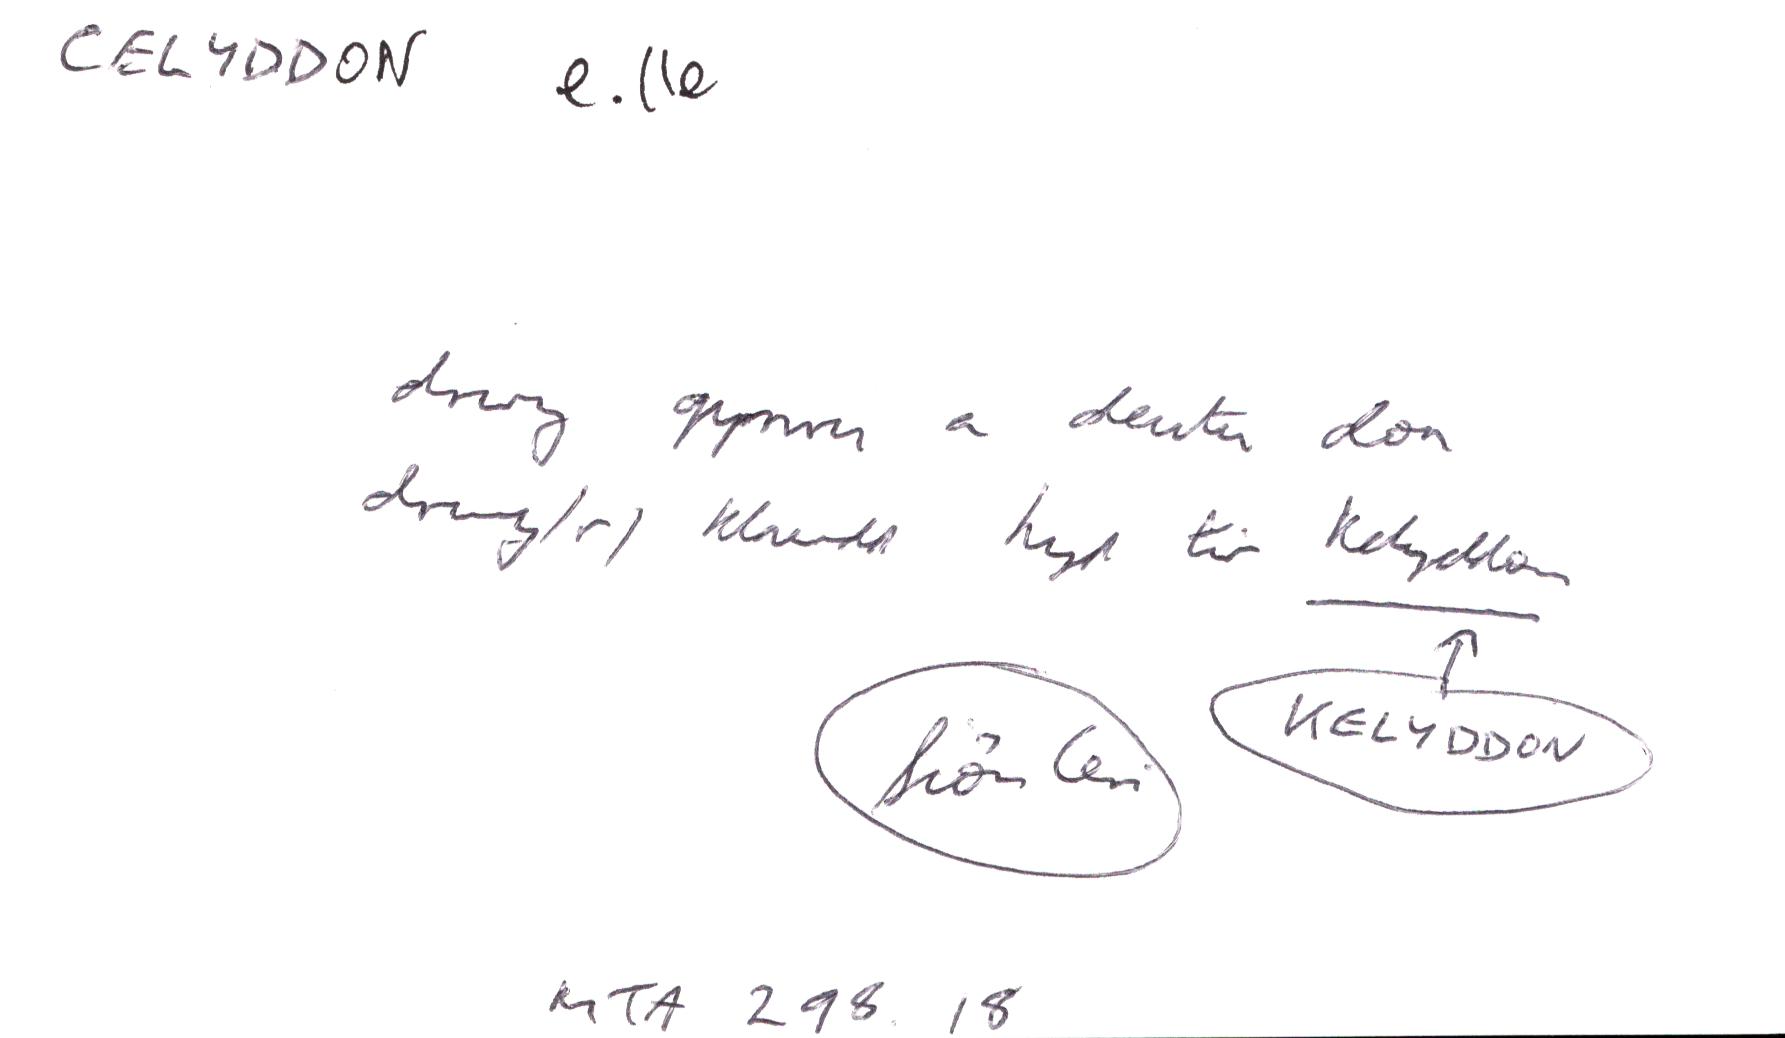 CELYDDON e.lle
drwy a deutu don
drwy/r/ klawdd hyd tir Kelyddon
KELYDDON
Siôn Ceri
MTA 298. 18